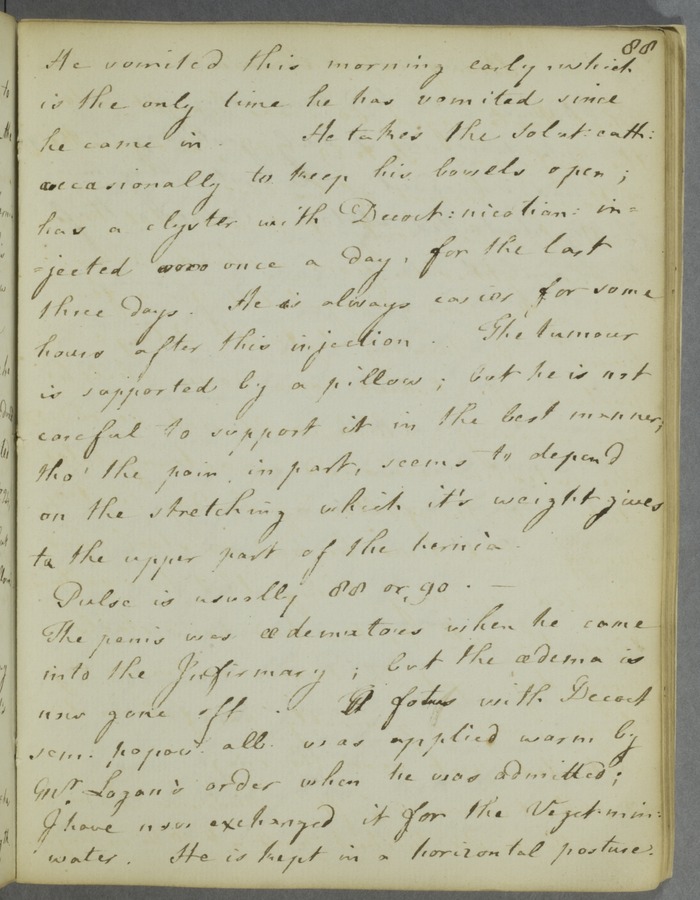 88
He vomited this morning early, which
is the only time he has vomited since
he came in. He takes the Solut: cath:
occasionally to keep his bowels open;
has a clyster with Decoct: nicotian: in=
=jected once a day, for the last
three days. He is always easier for some
hours after this injection. The tumour
is supported by a pillow; but he is not
careful to support it in the best manner;
tho' the pain, in part, seems to depend
on the stretching which it's weight gives
to the upper part of the hernia.
Pulse is usually 88 or 90. —
The penis was œdematous when he came
into the Infirmary; but the œdema is
now gone off. A fotus with Decoct
sem. papav: alb. was applied warm by
Mr Logan's order when he was admitted;
I have now exchanged it for the Veget: min:
water. He is kept in a horizontal posture.